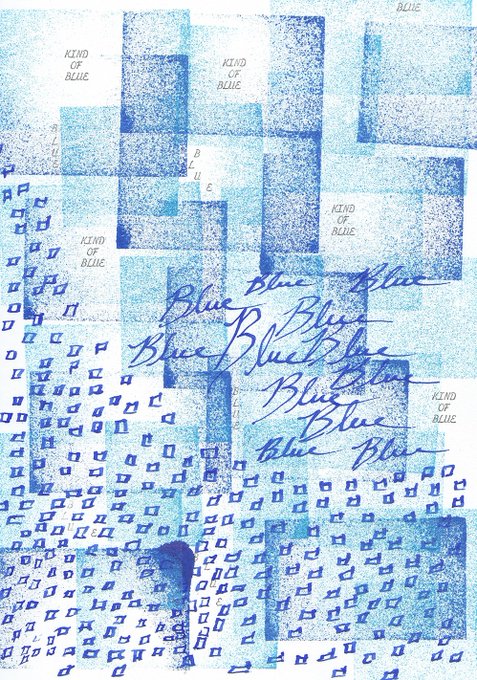 BLUE
KIND
OF
BLUE
KIND
OF
BLUE
B
L
U
E
B
L
U
E
KIND
OF
BLUE
KIND
OF
BLUE
Blue
Blue
Blue
Blue
Blue
Blue
Blue
Blue
Blue
Blue
Blue
Blue
Blue
KIND
OF
BLUE